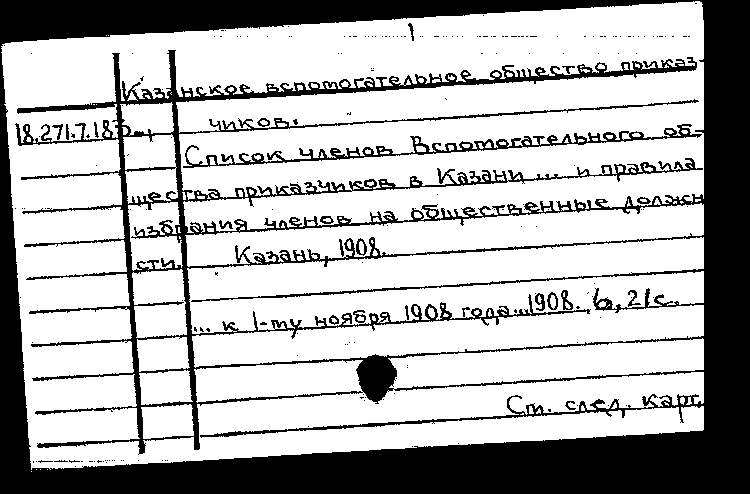 1
Казанское вспомогательное общество приказ-
18.271.7.183 чиков.
Список членов Вспомогательного об-
щества приказчиков в Казани ... и правила
избрания членов на общественные должн
сти. Казань, 1908.
... к 1-му ноября 1908 года...1908. 21с.
См. след. карт.